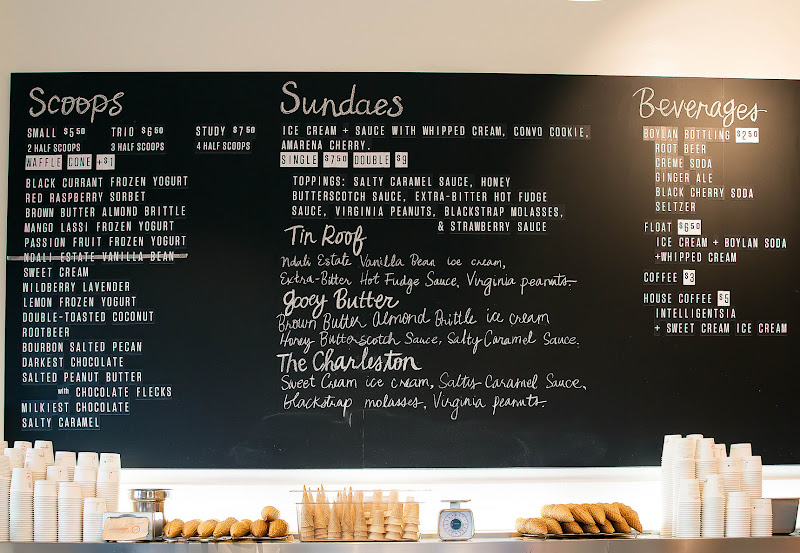 Scoops
SMALL $5.50 TRIO $6.50 STUDY $7.50
2 HALF SCOOPS 3 HALF SCOOPS 4 HALF SCOOPS
WAFFLE CONE +$1
BLACK CURRANT FROZEN YOGURT
RED RASPBERRY SORBET
BROWN BUTTER ALMOND BRITTLE
MANGO LASSI FROZEN YOGURT
PASSION FRUIT FROZEN YOGURT
NDALI ESTATE VANILLA BEAN
SWEET CREAM
WILDBERRY LAVENDER
LEMON FROZEN YOGURT
DOUBLE-TOASTED COCONUT
ROOTBEER
BOURBON SALTED PECAN
DARKEST CHOCOLATE
SALTED PEANUT BUTTER
with CHOCOLATE FLECKS
MILKIEST CHOCOLATE
SALTY CARAMEL
Sundaes
ICE CREAM + SAUCE WITH WHIPPED CREAM, CONVO COOKIE,
AMARENA CHERRY.
SINGLE $7.50 DOUBLE $9
TOPPINGS: SALTY CARAMEL SAUCE, HONEY
BUTTERSCOTCH SAUCE, EXTRA-BITTER HOT FUDGE
SAUCE, VIRGINIA PEANUTS, BLACKSTRAP MOLASSES,
& STRAWBERRY SAUCE
Tin Roof
Ndali Estate Vanilla Bean ice cream,
Extra-Bitter Hot Fudge Sauce, Virginia peanuts.
Gooey Butter
Brown Butter Almond Brittle ice cream
Honey Butterscotch Sauce, Salty Caramel Sauce.
The Charleston
Sweet Cream ice cream, Salty Caramel Sauce,
blackstrap molasses, Virginia peanuts.
Beverages
BOYLAN BOTTLING $2.50
ROOT BEER
CREME SODA
GINGER ALE
BLACK CHERRY SODA
SELTZER
FLOAT $6.50
ICE CREAM + BOYLAN SODA
+WHIPPED CREAM
COFFEE $3
HOUSE COFFEE $5
INTELLIGENTSIA
+ SWEET CREAM ICE CREAM